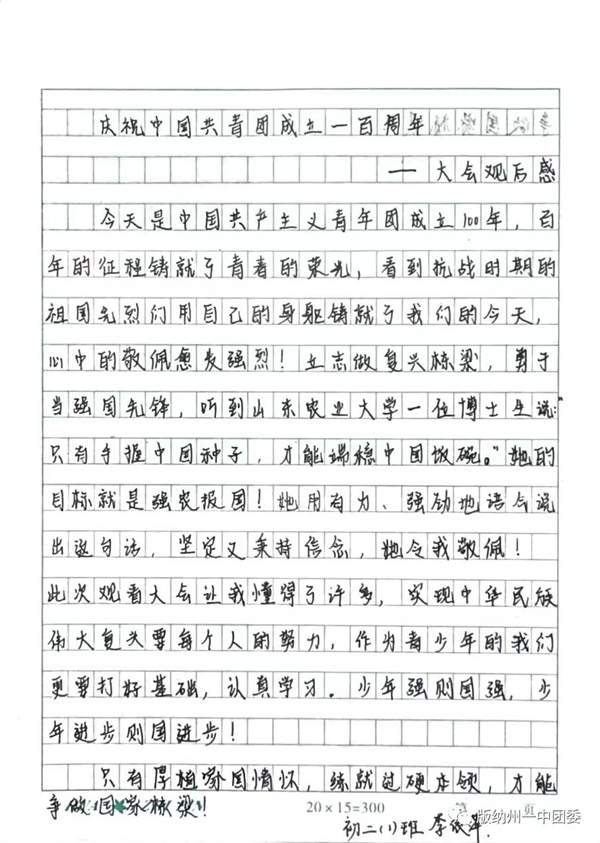 庆祝中国共青团成立一百周年
—大会观后感
今天是中国共产主义青年团成立100年,百
年的征程铸就了青春的荣光,看到抗战时期的
祖国先烈们用自己的身躯铸就了我们的今天,
心中的敬佩愈发强烈!立志做复兴栋梁,勇于
当强国先锋,听到山东农业大学一位博士生说:“
只有手握中国种子,才能端稳中国饭碗。”她的
目标就是强农报国!她用有力、强劲地语气说
出这句话,坚定又秉持信念,她令我敬佩!
此次观看大会让我懂得了许多,实现中华民族
伟大复兴要每个人的努力,作为青少年的我们
更要打好基础,认真学习。少年强则国强,少
年进步则国进步!
只有厚植家国情怀,练就过硬本领,才能
争做国家栋梁!
20×15=300
第 页
初二(1)班 李
版纳州一中团委